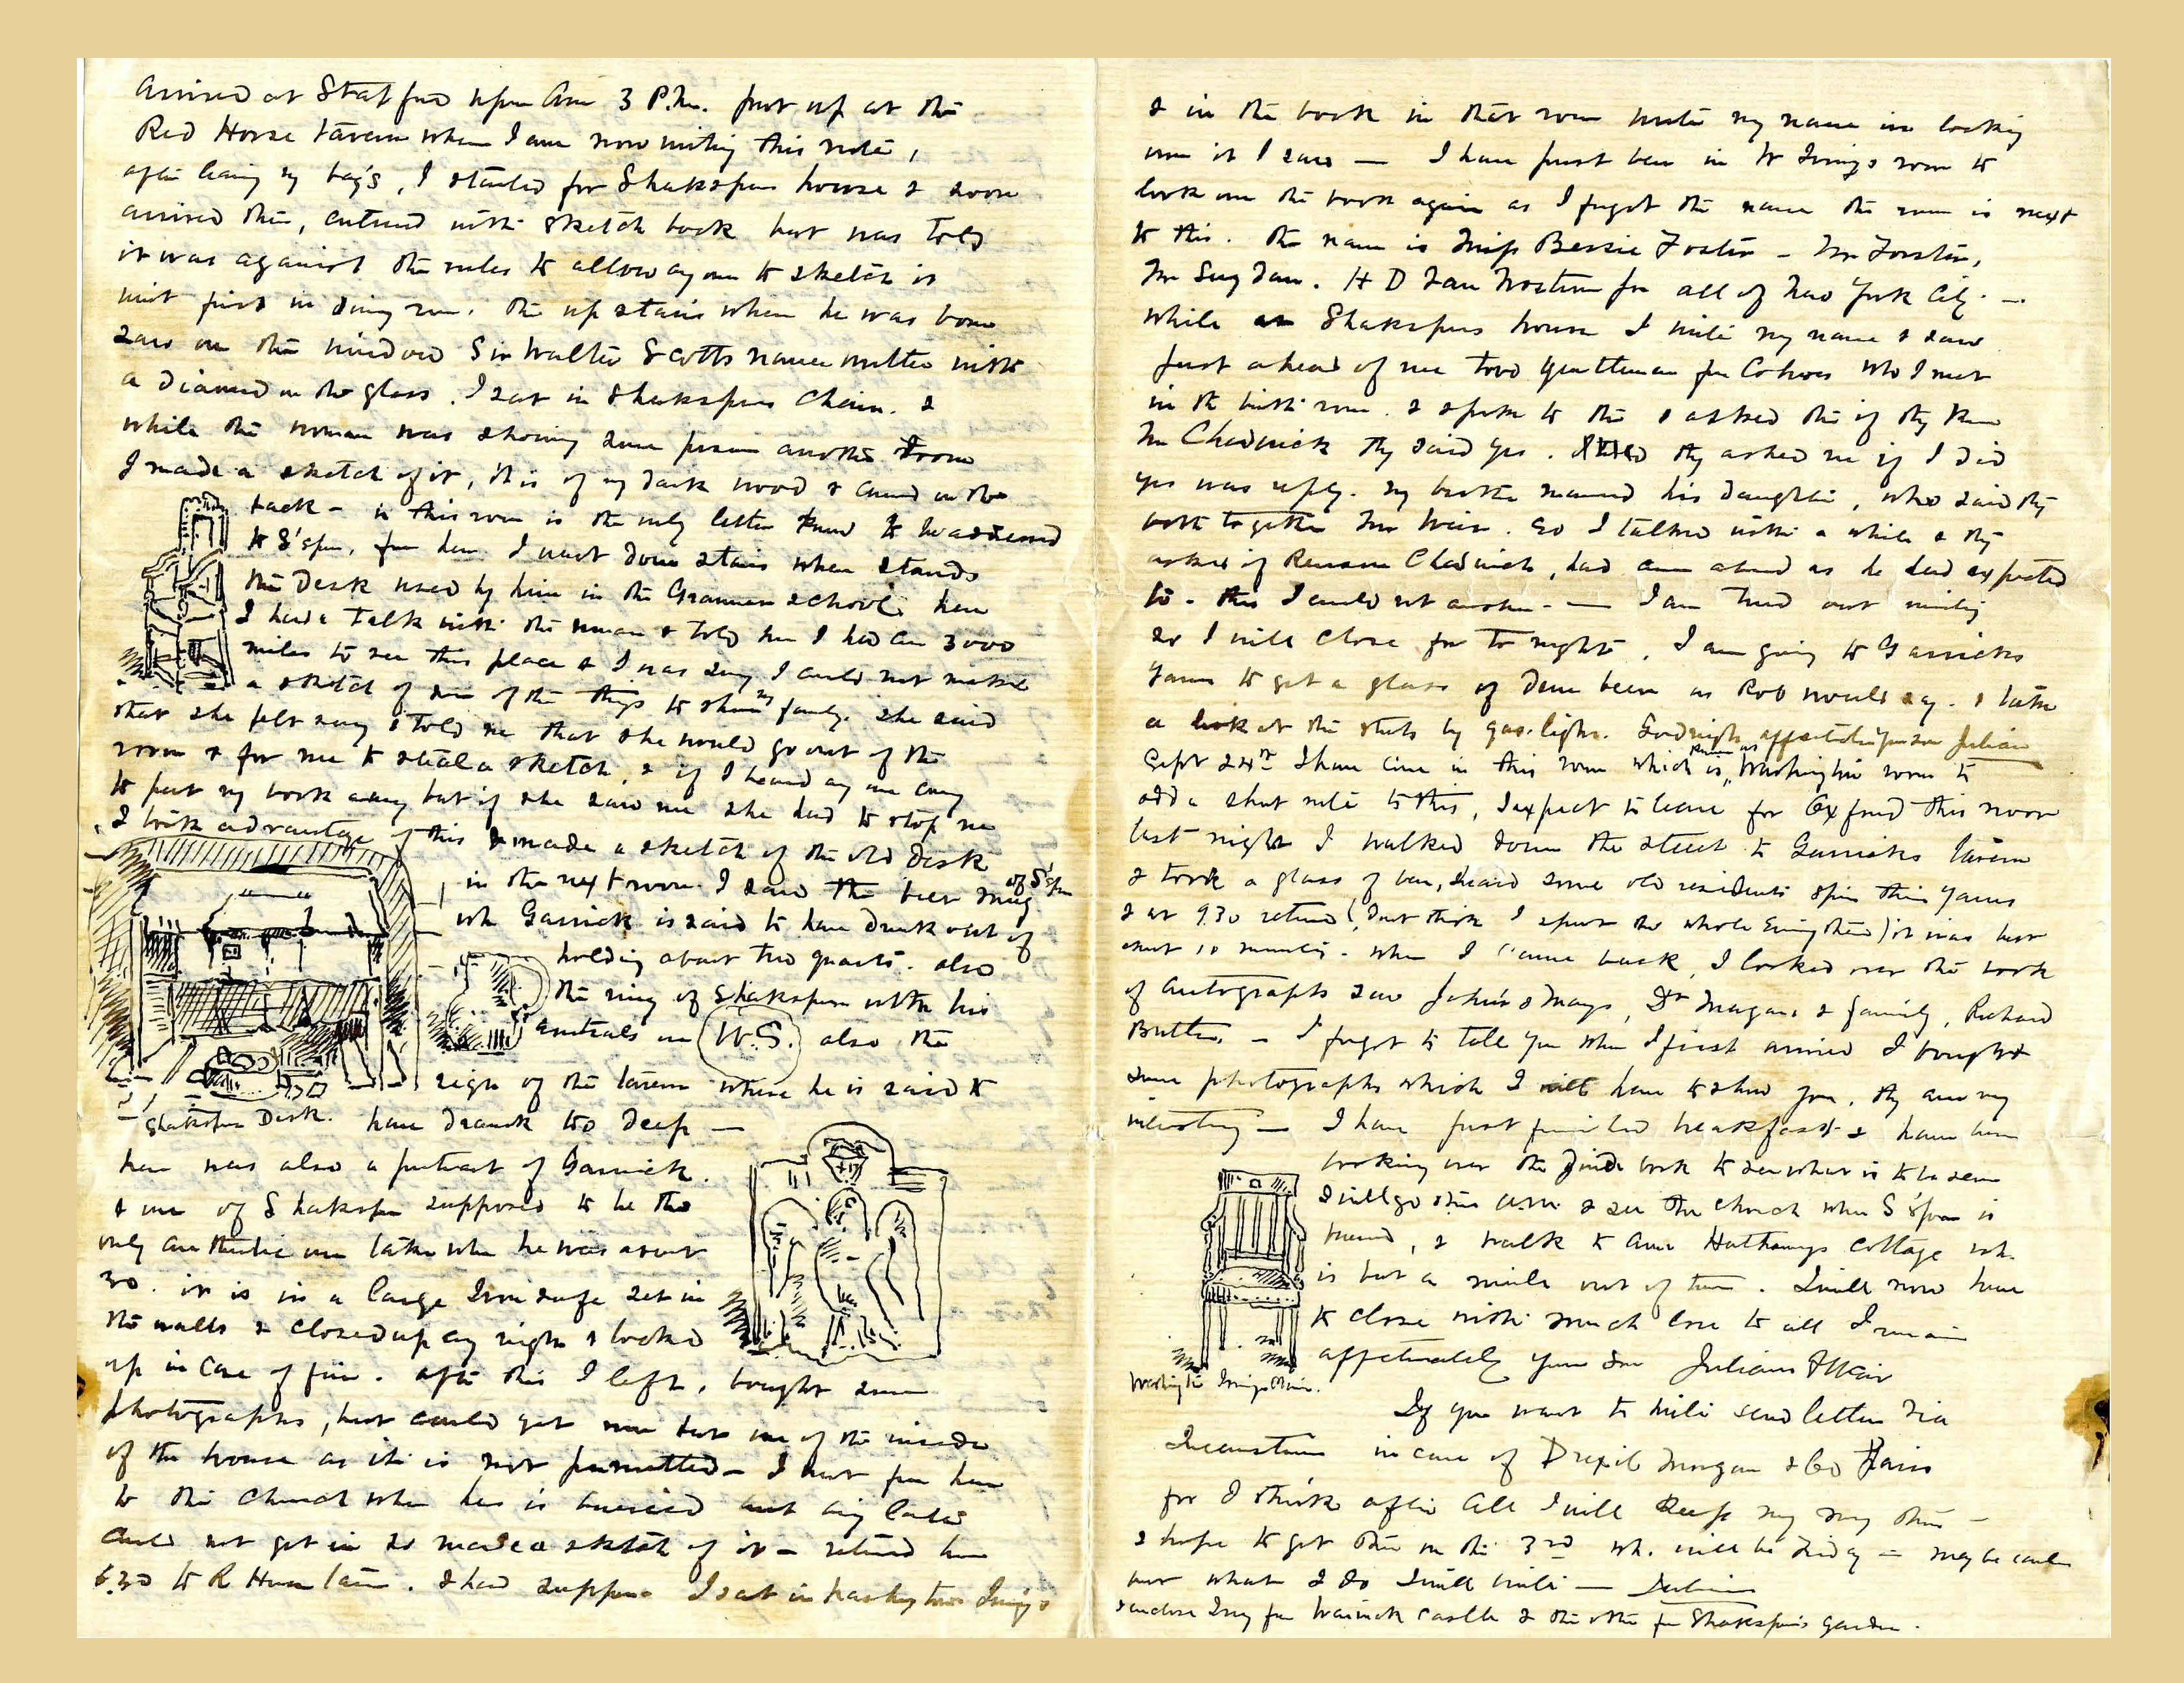 arrived at Stratford upon Avon 3 P.M. put up at the
Red Horse tavern where I am now writing this note,
after leaving my bag's, I started for Shakspears house & soon
arrived there, entered with sketch book but was told
it was against the rules to allow any one to sketch it
went first in room. then up stairs where he was born
saw on the window Sir Walter Scotts name written with
a diamond on the glass. I sat in Shakspears Chair. &
while the woman was showing some person another room
I made a sketch of it, this is of dark wood & carved on the
back – in this room is the only letter known to be addressed
to S'spear, from here I went down stairs where stands
the Desk used by him in the Grammer school. here
I had a talk with the woman & told her I had come 3000
miles to see this place & I was sorry I could not make
a sketch of some of the things to show my family. she said
that she felt sorry & told me that she would go out of the
room & for me to steal a sketch, & if I heard any one coming
to put my book away but if she saw me she had to stop me
I took advantage of this & made a sketch of the old desk
in the next room. I saw the beer mug of S'spear
wh Garrick is said to have drunk out of
holding about two quarts. also
the ring of Shakspear with his
initials on W.S. also the
sign of the tavern where he is said to
Shakspear Desk. have drank to deep —
here was also a portrait of Garrick.
& one of Shakspear supposed to be the
only authentic one taken when he was about
30. it is in a large Iron safe set in
the walls & closed up every night & locked
up in case of fire. after this I left, bought some
photographs, but could get none but one of the inside
of the house as it is not permitted – I went from here
to the Church where he is buried but being late
could not get in so made a sketch of it – returned here
6.30 to R Horse tavern. & had supper I sat in Washington Irving's
& in the book in that room wrote my name in looking
over it I saw — I have just been in W Irvings room to
look over the book again as I forgot the name the room is next
to this. the name is Miss Bessie Foster – Mr Forster,
Mr Suydam. H D Van Nostrum from all of New York City. —
while at Shakspears house I write my name & saw
just ahead of me two gentleman from Cohoes who I met
in the birth room. & spoke to them & asked them if they knew
Mr Chadwick they said yes. they asked me if I did
yes was reply. my brother married his daughter, who said they
both together Mr Weir. so I talked with a while & they
asked if Chadwick, had come abroad as he had expected
to – this I could not answer. — I am tired out writing
so I will close for to night, I am going to Garricks
tavern to get a glass of beer as Rob would say. & take
a look at the streets by gas-light. Goodnight affectionately your son Julian
Sept 24th I have come in this room which is known as Washington room to
add a short note to this, I expect to leave for Oxford this noon
last night I walked down the street to Garricks tavern
& took a glass of beer, heard some old residents spin their yarns
& at 9.30 returned (dont think I spent the whole Evening there) it was but
about 10 minutes. when I came back, I looked over the book
of autographs saw John's & Mays, Dr Magans & family, Richard
Butler. — I forgot to tell you when I first arrived I bought
some photographs which I will have to show you, they are very
interesting — I have just finished breakfast & have been
looking over the guide book to see what is to be seen
I will go this a.m. & see the church where S'spear is
buried, & walk to Ann Hathaways Cottage wh.
is but a mile out of town. I will now have
to close with much love to all I remain
affectionately your son Julian A Weir
Washington Irvings Chair.
If you want to write send letter via
Queenstown in care of Drexil Morgan & Co Paris
for I think after all I will keep my way there –
I hope to get there on the 3rd wh. will be Friday – may be earlier
what I do I will write — Julian
I enclose Ivy from Warwick Castle & the other from Shakspears garden.